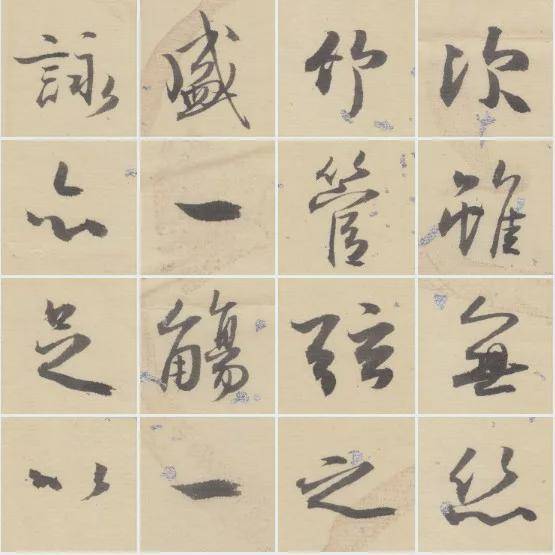 次雖無丝
竹管弦之
盛一觴一
詠亦足以